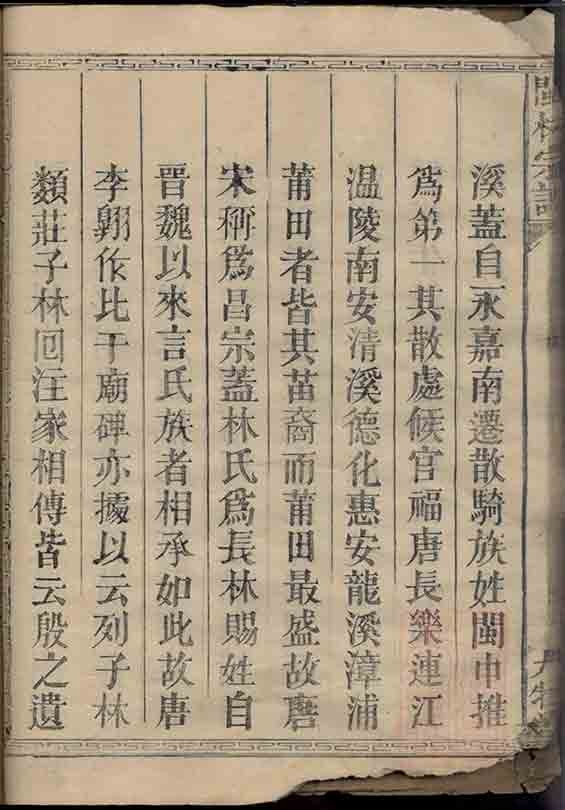 閩林宗譜
溪蓋自永嘉南遷散騎族姓閩中推
爲第一其散處候官福唐長樂連江
温陵南安清溪德化惠安龍溪漳浦
莆田者皆其苗裔而莆田最盛故唐
宋稱爲昌宗蓋林氏爲長林賜姓自
晉魏以來言氏族者相承如此故唐
李翺作比干廟碑亦據以云列子林
類莊子林回注家相傳皆云殷之遺